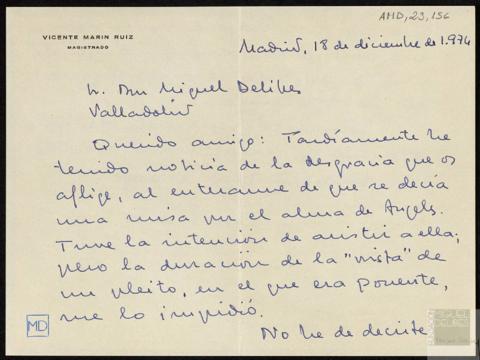 AMD, 23, 156
VICENTE MARIN RUIZ
MAGISTRADO
Madrid, 18 de diciembre de 1.974
Sr. Don Miguel Delibes
Valladolid
Querido amigo: Tardíamente he
tenido noticia de la desgracia que os
aflige, al enterarme de que se decía
una misa por el alma de Angels.
Tuve la intención de asistir a ella;
pero la duración de la "vista" de
un pleito, en el que era ponente,
me lo impidió.
No he de decirte
MD
FUNDACIÓN
MIGUEL
DELIBES